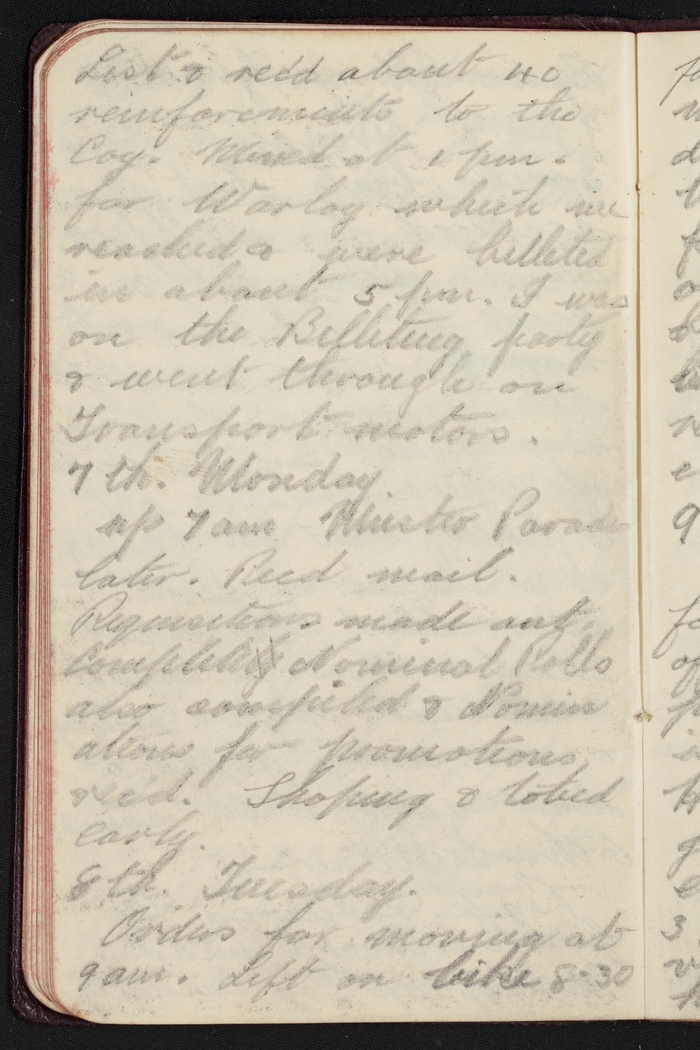 List & rec'd about 40
reinforcements to the
Coy. Moved at 1 pm.
for Warloy which we
reached & were billeted
in about 5 pm. I was
on the Billeting party
& went through on
Transport motors.
7th. Monday
up 7 am Muster Parade
later. Recd mail.
Requisitions made out.
Complete Nominal Rolls
also compiled & Nomin
ations for promotions
rec'd. Shoping & tobed
early.
8th. Tuesday.
Orders for moving at
9 am. Left on bike 8.30